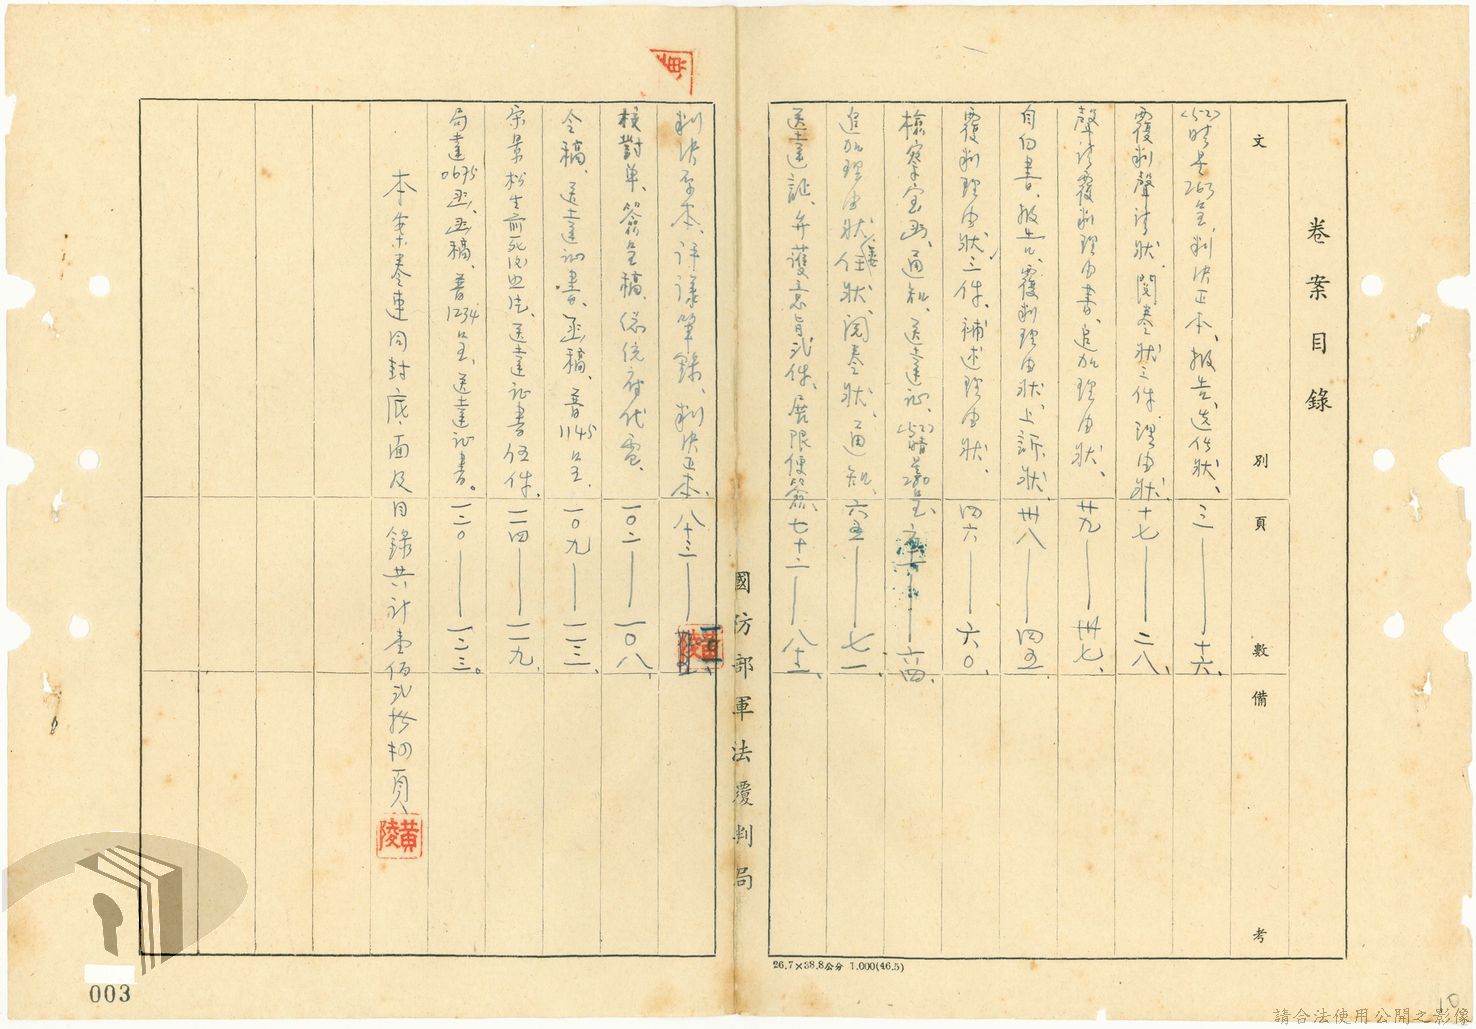 卷案目錄
文別
頁數
備考
(52)晴晃263呈、判決正本、報告、選任狀、三——十六、
覆判聲請狀、閱卷狀三件、理由狀、十七——二八、
聲請覆判理由書、追加理由狀、廿九——卅七、
自白書、報告、覆判理由狀、上訴狀、卅八——四五
覆判理由狀三件、補述理由狀、四六——六〇、
檢察官函、通知、送達證、——六四、
追加理由狀、委任狀、閱卷狀、通知、六五——七一、
送達証、弁護意旨弍件、展限便簽、七十二——八十二、
國防部軍法覆判局
判決原本、評議筆錄、判決正本、八十三——
核對单、簽呈稿、總統府代電、一〇二——一〇八、
令稿、送達証書、函稿、普1145呈、一〇九——一一三、
宋景松生前死後照片、送達証書伍件、一一四——一一九、
局達0695函、函稿、普1234呈、送達証書。一二〇——一二三。
本案卷連同封底、面及目錄共計壹佰弍拾柒頁、
黃陵
26.7×38.8公分 1.000(46.5)
003
10
請合法使用公開之影像